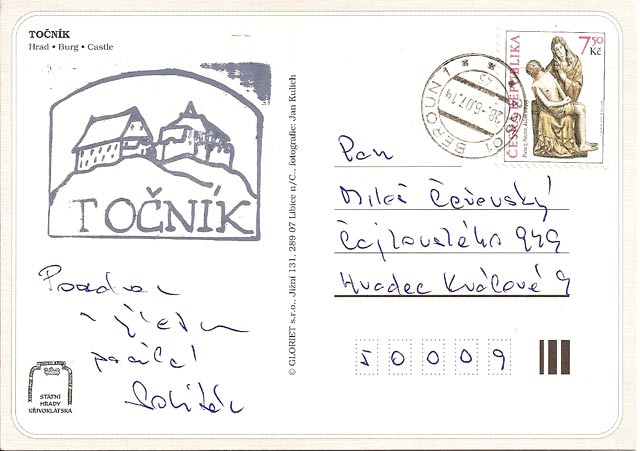 TOČNÍK
Hrad • Burg • Castle
TOČNÍK
Pozdrav
STATNI
HRADY
KŘIVOKLÁTSKA
© GLORIET s.r.o., Jižní 131, 289 07 Libice n/C., fotografie: Jan Kulich
BEROUN 1
28.-6.07.14
7,50
Kč
ČESKÁ REPUBLIKA
Pan
Miloš Čeřevský
Čajkovského 949
Hradec Králové 9
50009